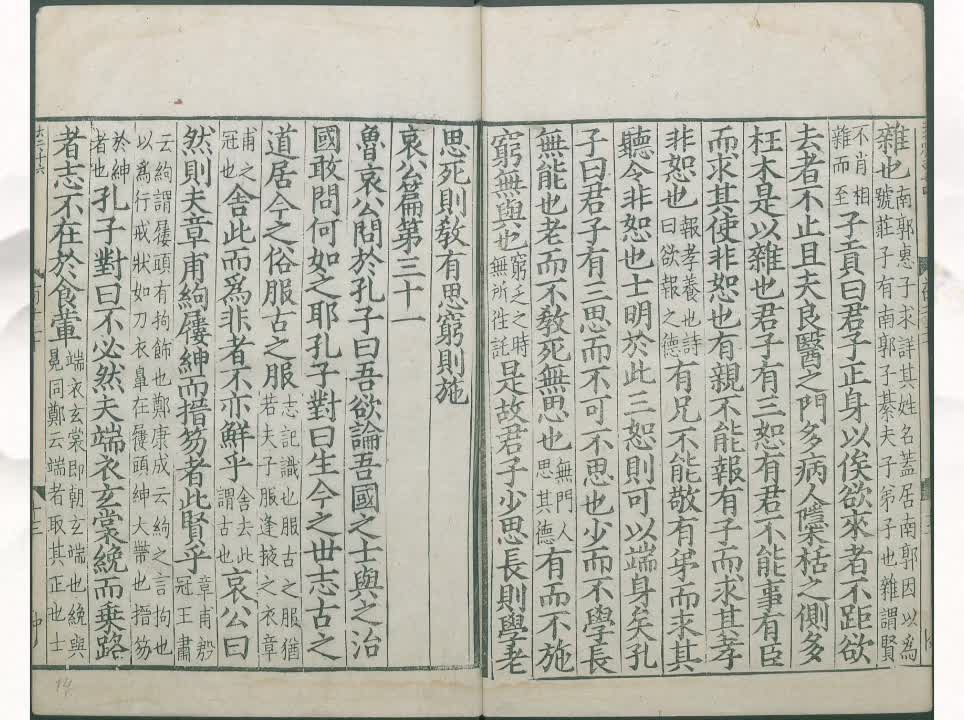 雜也南郭惠子求詳其姓名蓋居南郭因以爲號莊子有南郭子綦夫子弟子也雜謂賢
不肖相雜而至子貢曰君子正身以俟欲來者不距欲
去者不止且夫良醫之門多病人隱栝之側多
枉木是以雜也君子有三恕有君不能事有臣
而求其使非恕也有親不能報有子而求其孝
非恕也報孝養也詩曰欲報之德有兄不能敬有弟而求其
聽令非恕也士明於此三恕則可以端身矣孔
子曰君子有三思而不可不思也少而不學長
無能也老而不教死無思也無門人思其德有而不施
窮無與也窮乏之時無所往託是故君子少思長則學老
思死則教有思窮則施
哀公篇第三十一
魯哀公問於孔子曰吾欲論吾國之士與之治
國敢問何如之耶孔子對曰生今之世志古之
道居今之俗服古之服志記識也服古之服猶若夫子服逢掖之衣章
甫之冠也舍此而爲非者不亦鮮乎舍去此謂古也哀公曰
然則夫章甫絇屨紳而搢笏者此賢乎章甫殷冠王肅
云絇謂屨頭有拘飾也鄭康成云絇之言拘也以爲行戒狀如刀衣鼻在屨頭紳大帶也搢笏
於紳者也孔子對曰不必然夫端衣玄裳絻而乗路
者志不在於食葷端衣玄裳即朝玄端也絻與冕同鄭云端者取其正也士